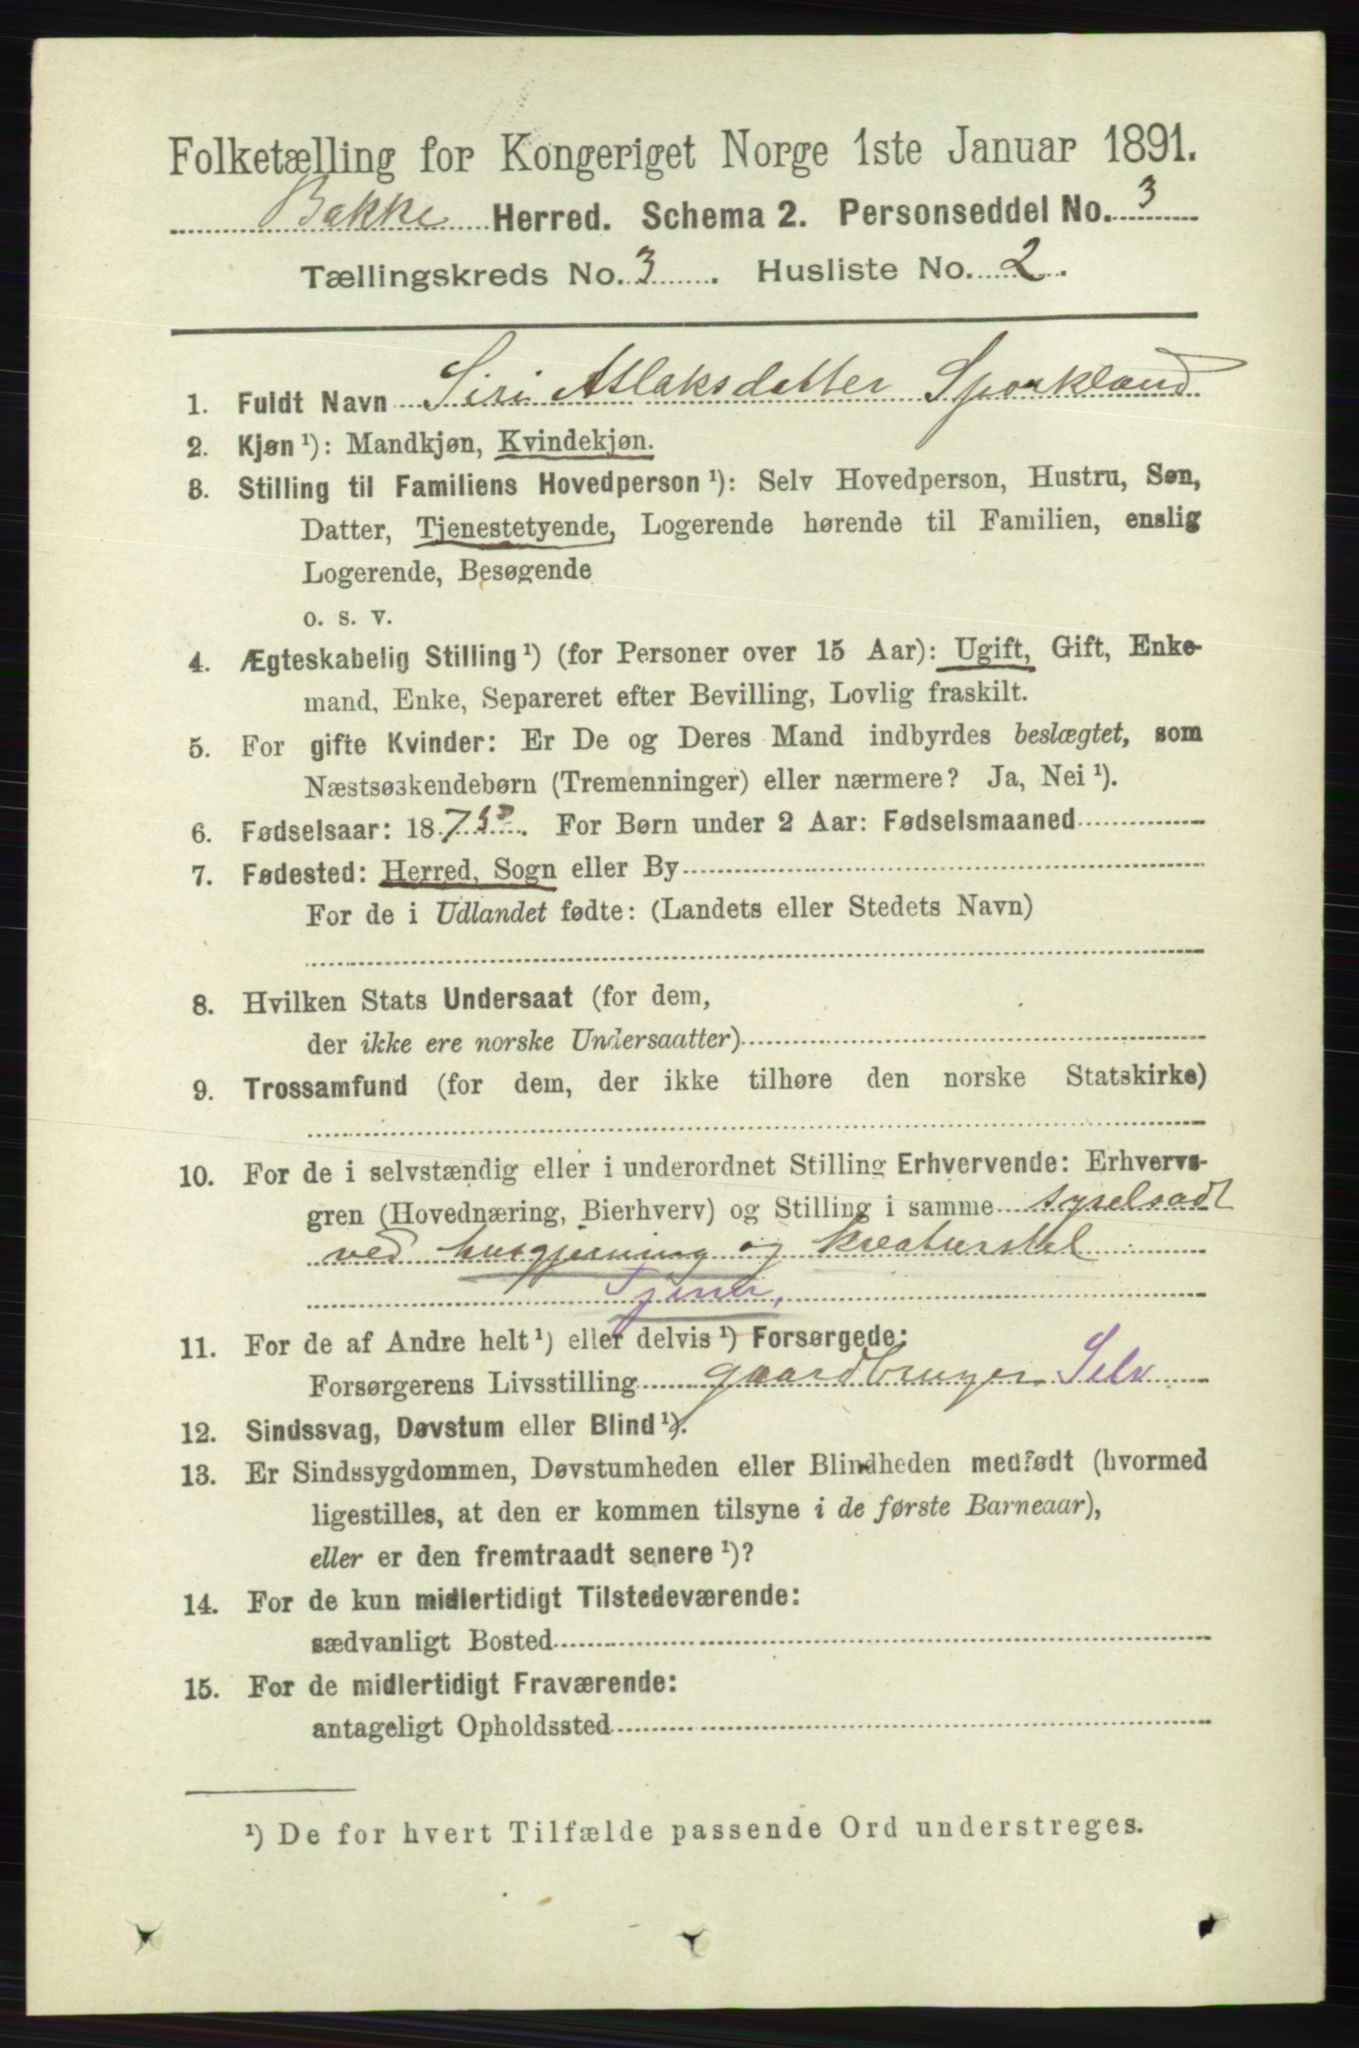 Folketælling for Kongeriget Norge 1ste Januar 1891.
Bakke Herred. Schema 2. Personseddel No. 3
Tællingskreds No. 3. Husliste No. 2.
1. Fuldt Navn Siri Atlaksdatter Sporkland
2. Kjøn¹): Mandkjøn, Kvindekjøn.
3. Stilling til Familiens Hovedperson¹): Selv Hovedperson, Hustru, Søn,
Datter, Tjenestetyende, Logerende hørende til Familien, enslig
Logerende, Besøgende
o. s. v.
4. Ægteskabelig Stilling¹) (for Personer over 15 Aar): Ugift, Gift, Enke-
mand, Enke, Separeret efter Bevilling, Lovlig fraskilt.
5. For gifte Kvinder: Er De og Deres Mand indbyrdes beslægtet, som
Næstsøskendebørn (Tremenninger) eller nærmere? Ja, Nei¹).
6. Fødselsaar: 187. For Børn under 2 Aar: Fødselsmaaned
7. Fødested: Herred, Sogn eller By
For de i Udlandet fødte: (Landets eller Stedets Navn)
8. Hvilken Stats Undersaat (for dem,
der ikke ere norske Undersaatter)
9. Trossamfund (for dem, der ikke tilhøre den norske Statskirke)
10. For de i selvstændig eller i underordnet Stilling Erhvervende: Erhvervs-
gren (Hovednæring, Bierhverv) og Stilling i samme syselsadt
ved husgjerning og kreaturstel
Tjener,
11. For de af Andre helt¹) eller delvis¹) Forsørgede:
Forsørgerens Livsstilling gaardbruger Selv
12. Sindssvag, Døvstum eller Blind¹).
13. Er Sindssygdommen, Døvstumheden eller Blindheden medfødt (hvormed
ligestilles, at den er kommen tilsyne i de første Barneaar),
eller er den fremtraadt senere¹)?
14. For de kun midlertidigt Tilstedeværende:
sædvanligt Bosted
15. For de midlertidigt Fraværende:
antageligt Opholdssted
¹) De for hvert Tilfælde passende Ord understreges.